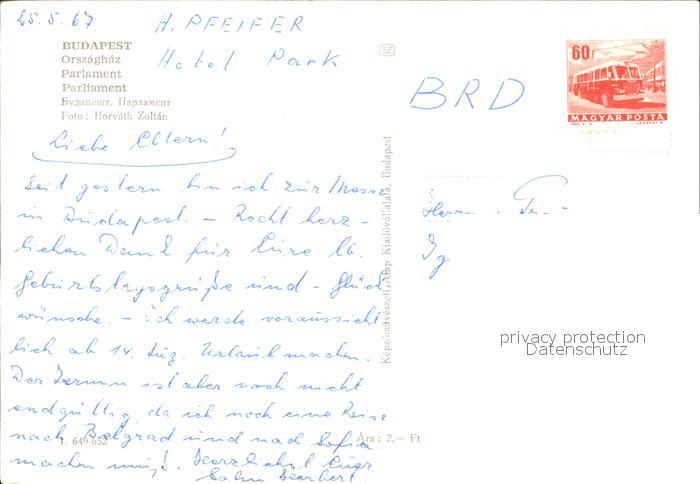 25.5.67 H. PFEIFER
Hotel Park
BUDAPEST
Országház
Parlament
Parliament
Будапешт. Парламент
Foto: Horváth Zoltán
SZ
BRD
60f
MAGYAR POSTA
Liebe Eltern!
Seit gestern bin ich zur Messe
in Budapest. – Recht herz-
lichen Dank für Eure lb.
Geburtstagsgrüße und – Glück
wünsche. – ich werde voraussicht
lich ab 14. Aug. Urlaub machen.
Der Termin ist aber noch nicht
endgültig da ich noch eine Reise
nach Belgrad und nach Sofia
machen muß. Herzlichst Euer
Sohn Herbert.
Képzőművészeti Alap Kiadóvállalata, Budapest
Herrn
privacy protection
Datenschutz
649-652
Ára: 2,— Ft